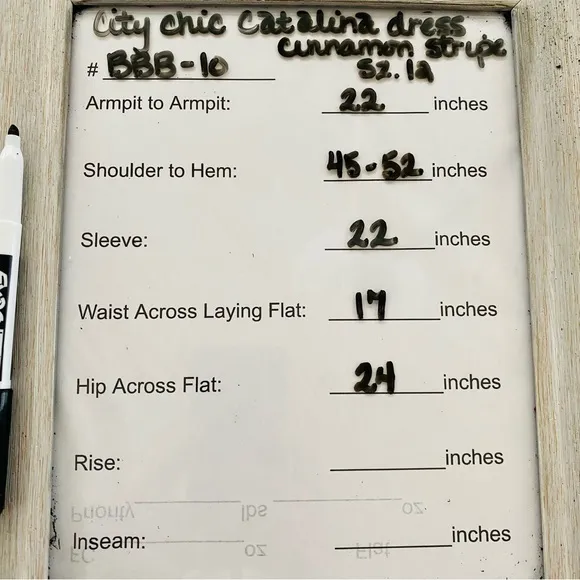 City chic Catalina dress
cinnamon stripe
# BBB-10 sz. 12
Armpit to Armpit: 22 inches
Shoulder to Hem: 45-52 inches
Sleeve: 22 inches
Waist Across Laying Flat: 17 inches
Hip Across Flat: 24 inches
Rise: inches
Priority lbs oz
Inseam: inches
FC oz Flat
EXPO